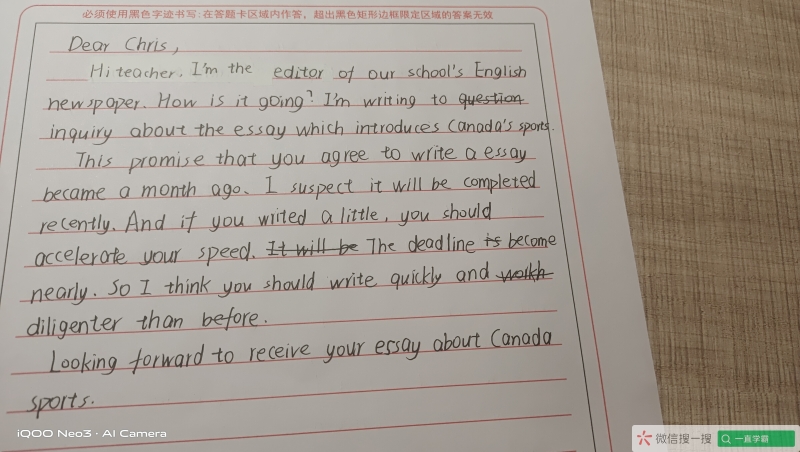 必须使用黑色字迹书写:在答题卡区域内作答,超出黑色矩形边框限定区域的答案无效
Dear Chris,
Hi teacher. I'm the editor of our school's English
newspaper. How is it going? I'm writing to question
inquiry about the essay which introduces Canada's sports.
This promise that you agree to write a essay
became a month ago. I suspect it will be completed
recently. And if you writed a little, you should
accelerate your speed. It will be The deadline is become
nearly. So I think you should write quickly and
diligenter than before.
Looking forward to receive your essay about Canada
sports.
iQOO Neo3 · AI Camera
微信搜一搜 一直学霸